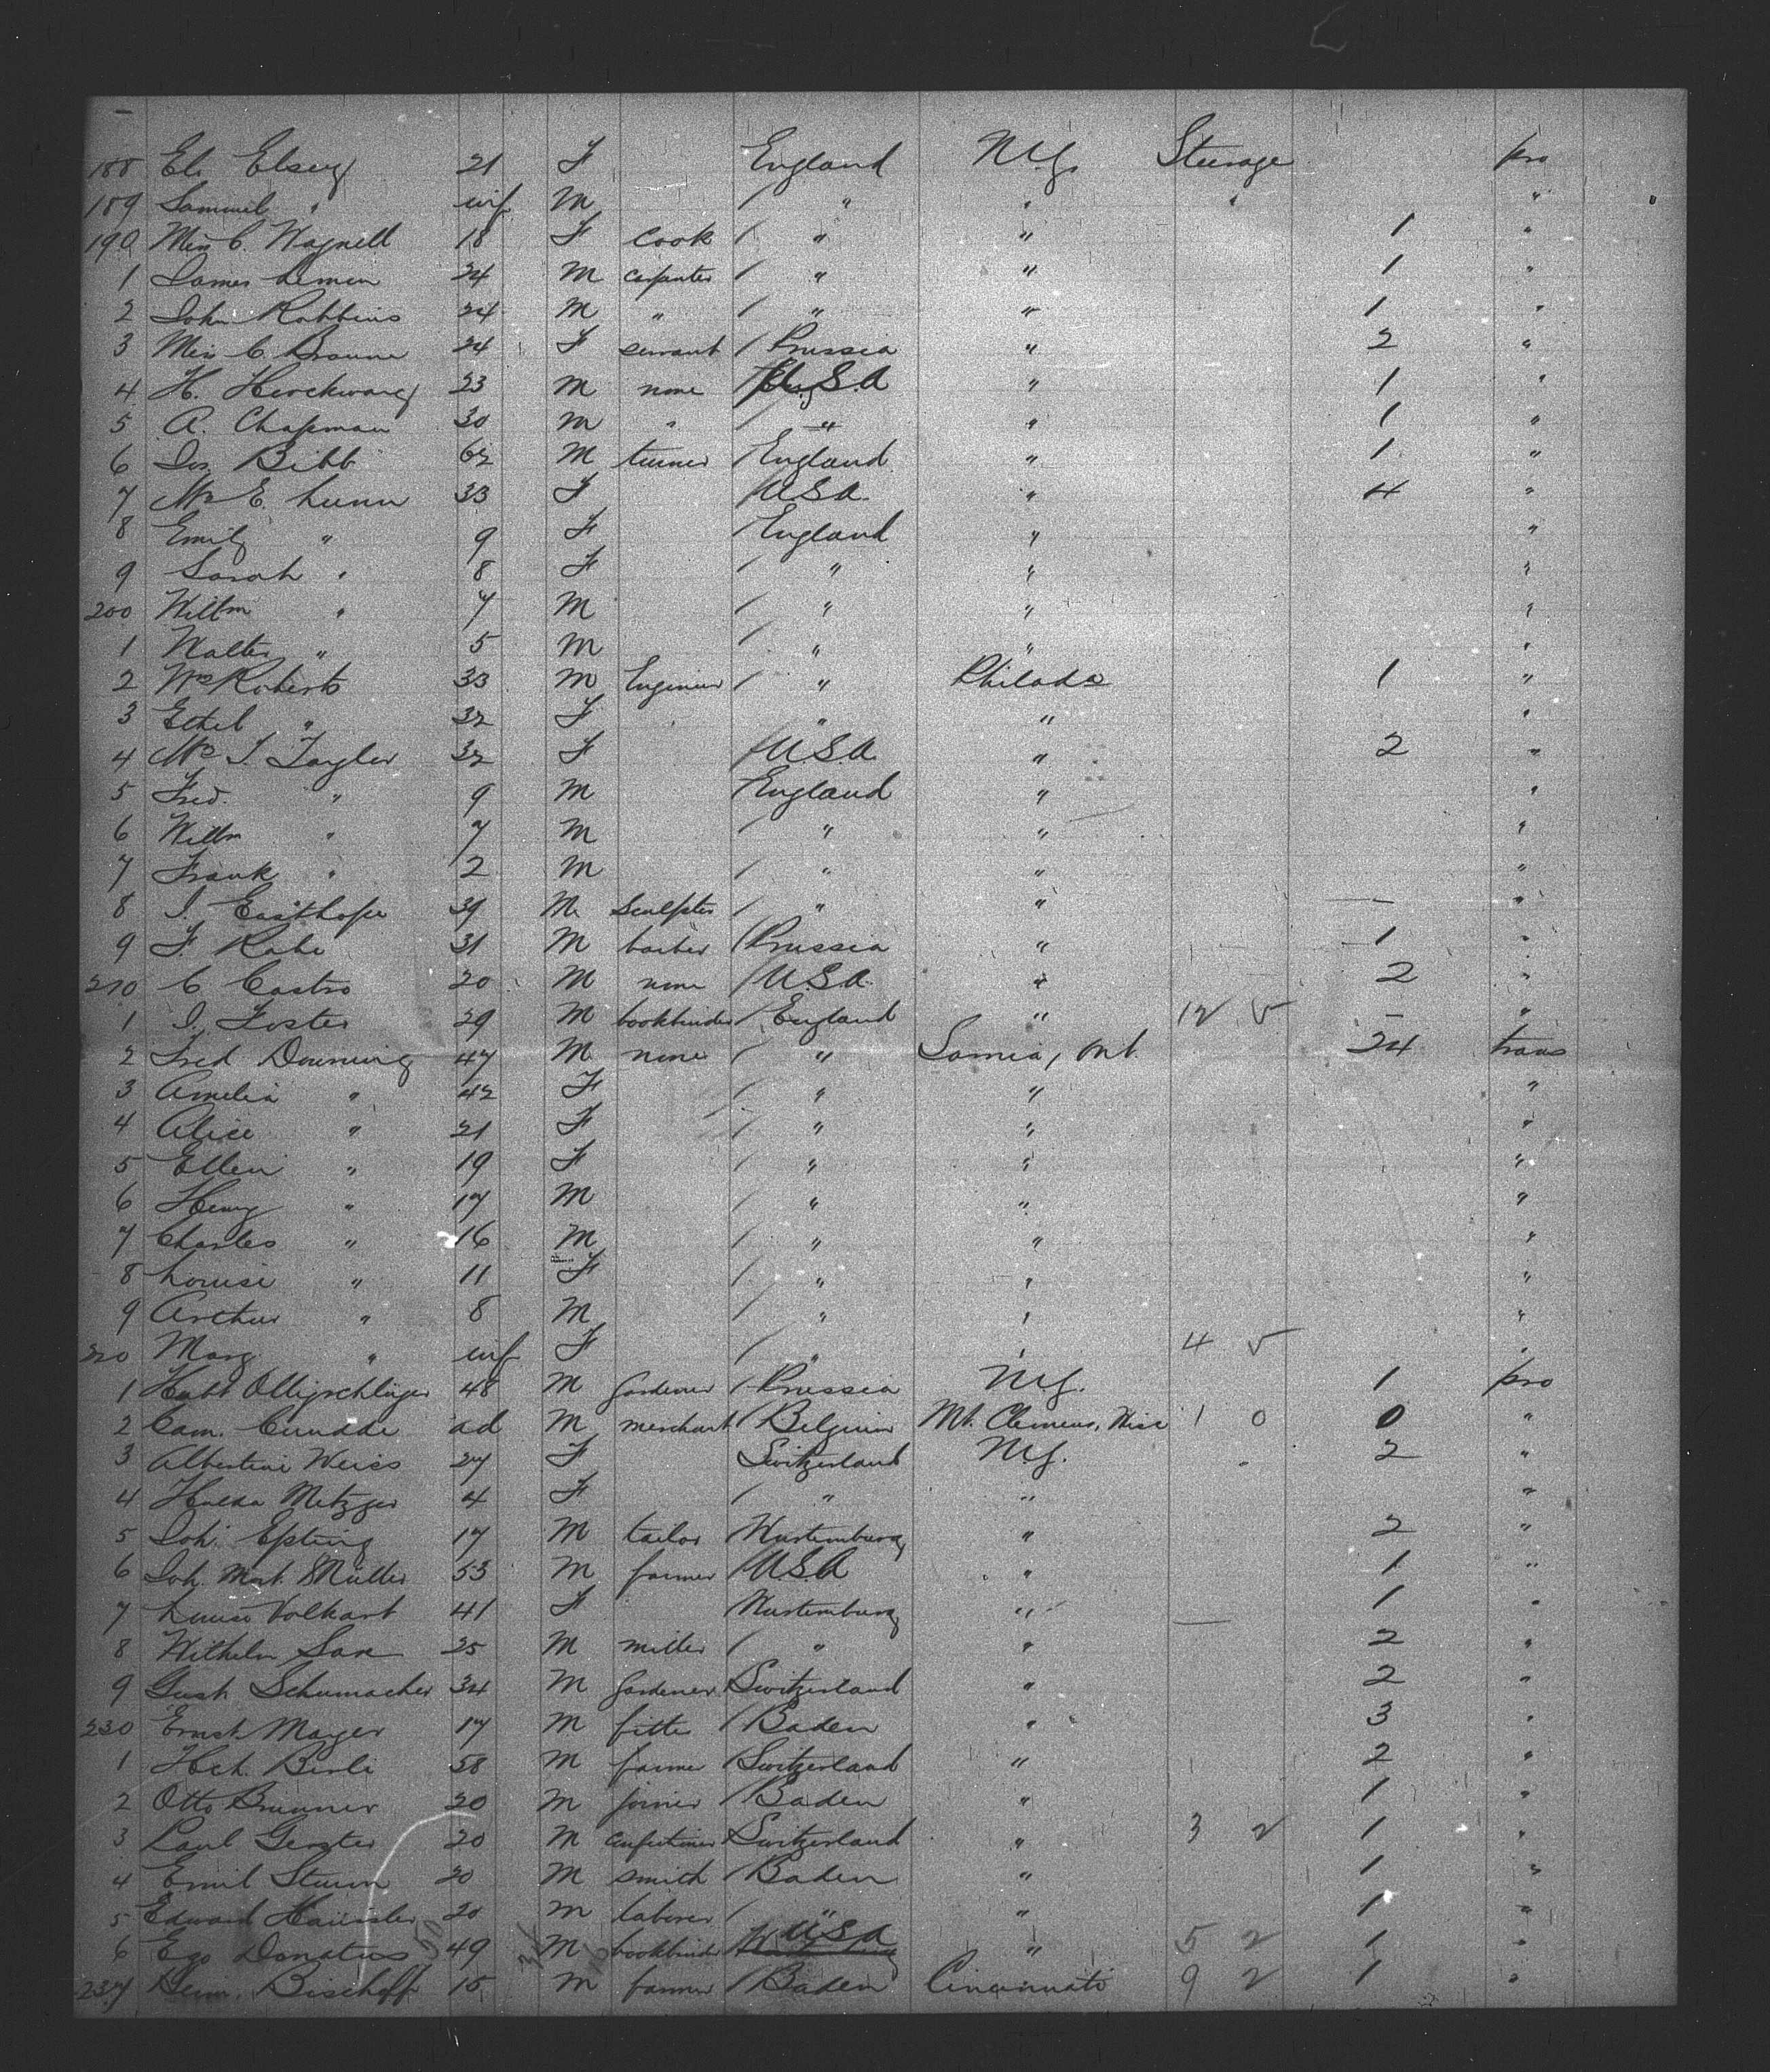 188 El. Elsey 21 F England N.Y. Steerage pro
189 Samuel " inf M " " " "
190 Miss C. Wagnell 18 F cook " " 1 "
1 James Lemon 24 M carpenter " " 1 "
2 John Robbins 24 M " " " 1 "
3 Miss C. Braune 24 F servant Prussia " 2 "
4 H. 23 M none U.S.A " 1 "
5 A. Chapman 30 M " " " 1 "
6 Jos. Bibb 62 M turner England " 1 "
7 Mrs E. Lunn 33 F U.S.A. " 4 "
8 Emily " 9 F England " "
9 Sarah " 8 F " " "
200 Willm " 7 M " " "
1 Walter " 5 M " " "
2 Wm Roberts 33 M Engineer " Philada 1 "
3 Ethel " 32 F " " "
4 Mrs J. Tayler 32 F U.S.A " 2 "
5 Fred. " 9 M England " "
6 Willm " 7 M " " "
7 Frank " 2 M " " "
8 J. Easthope 39 M sculptor " " — "
9 F. Rabe 31 M barber Prussia " 1 "
210 C Castro 20 M none U.S.A. " 2 "
1 J. Foster 29 M bookbinder England " 12 5 — "
2 Fred Downing 47 M none " Sarnia, Ont. 24 trans
3 Amelia " 42 F " " "
4 Alice " 21 F " " "
5 Ellen " 19 F " " "
6 Henry " 17 M " " "
7 Charles " 16 M " " "
8 Louise " 11 F " " "
9 Arthur " 8 M " " "
220 Marg " inf F " " 4 5 "
1 Hubt Olligschläger 48 M gardener Prussia N.Y. 1 pro
2 Cam. ad M merchant Belgium Mt. Clemens, 1 0 0 "
3 Albertine Weiss 27 F Switzerland N.Y. 2 "
4 Hulda Metzger 4 F " " "
5 Joh. Epting 17 M tailor Wurtemburg " 2 "
6 Joh. Mart. Müller 53 M farmer U.S.A " 1 "
7 Louise Volkart 41 F Wurtemburg " — 1 "
8 Wilhelm Sax 25 M miller " " 2 "
9 Gust. Schumacher 34 M gardener Switzerland " 2 "
230 Ernst Mayer 17 M fitter Baden " 3 "
1 Hch. Birli 58 M farmer Switzerland " 2 "
2 Otto Brunner 20 M joiner Baden " 1 "
3 Paul Gerster 20 M confectioner Switzerland " 3 2 1 "
4 Emil Sturm 20 M smith Baden " 1 "
5 Edward Häussler 20 M laborer " " 1 "
6 Ego Donatus 49 M bookbinder U.S.A " 5 2 1 "
237 Heinr. Bischoff 15 M farmer Baden Cincinnati 9 2 1 "